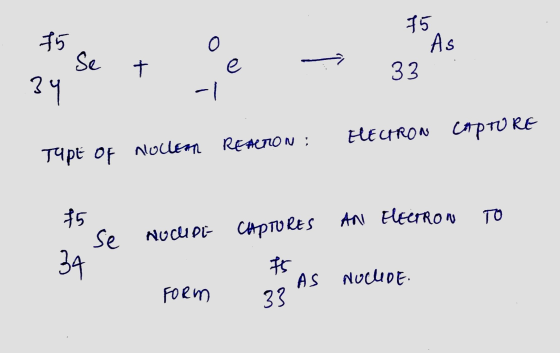 75 34 Se + 0 -1 e → 75 33 As
TYPE OF NUCLEAR REACTION : ELECTRON CAPTURE
75 34 Se NUCLIDE CAPTURES AN ELECTRON TO
FORM 75 33 AS NUCLIDE.